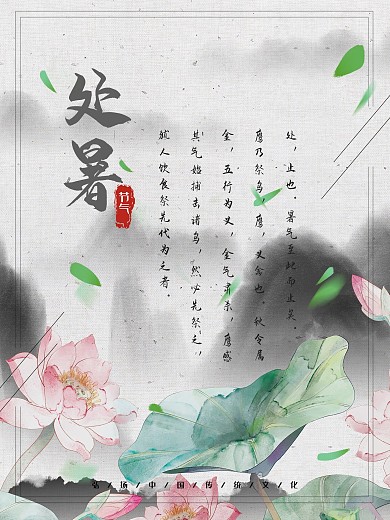 处暑
节气
处，止也。暑气至此而止矣。
鹰乃祭鸟，鹰，义禽也。秋令属
金，五行为义，金气肃杀，鹰感
其气始捕击诸鸟，然必先祭之，
犹人饮食祭先代为之者。
弘/扬/中/国/传/统/文/化